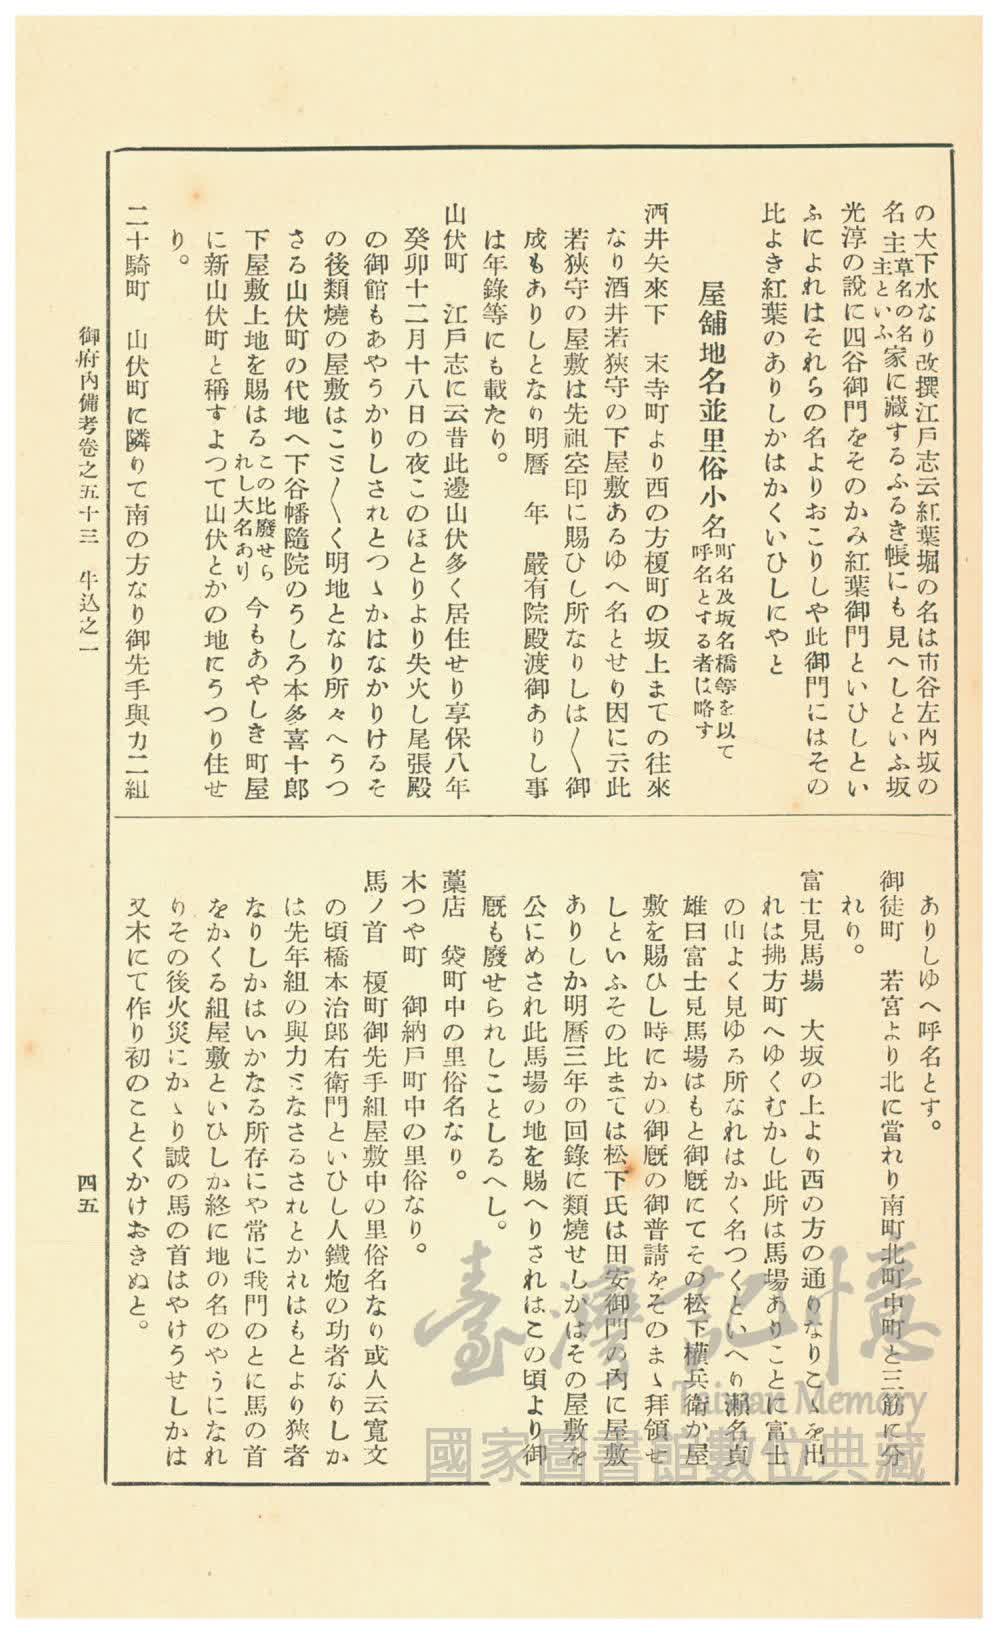 の大下水なり改撰江戸志云紅葉堀の名は市谷左内坂の
名主草名の名主といふ家に藏するふるき帳にも見へしといふ坂
光淳の說に四谷御門をそのかみ紅葉御門といひしとい
ふによれはそれらの名よりおこりしや此御門にはその
比よき紅葉のありしかはかくいひしにやと
屋舖地名並里俗小名町名及坂名橋等を以て呼名とする者は略す
酒井矢來下　末寺町より西の方榎町の坂上まての往來
なり酒井若狹守の下屋敷あるゆへ名とせり因に云此
若狹守の屋敷は先祖空印に賜ひし所なりしは〱御
成もありしとなり明曆　年　嚴有院殿渡御ありし事
は年錄等にも載たり。
山伏町　江戸志に云昔此邊山伏多く居住せり享保八年
癸卯十二月十八日の夜このほとりより失火し尾張殿
の御館もあやうかりしされとつゝかはなかりけるそ
の後類燒の屋敷はこと〲く明地となり所々へうつ
さる山伏町の代地へ下谷幡隨院のうしろ本多喜十郞
下屋敷上地を賜はるこの比廢せられし大名あり今もあやしき町屋
に新山伏町と稱すよつて山伏とかの地にうつり住せ
り。
二十騎町　山伏町に隣りて南の方なり御先手與力二組
ありしゆへ呼名とす。
御徒町　若宮より北に當れり南町北町中町と三筋に分
れり。
富士見馬場　大坂の上より西の方の通りなりこゝを出
れは拂方町へゆくむかし此所は馬場ありことに富士
の山よく見ゆる所なれはかく名つくといへり瀨名貞
雄曰富士見馬場はもと御厩にてその松下權兵衞か屋
敷を賜ひし時にかの御厩の御普請をそのまゝ拜領せ
しといふその比まては松下氏は田安御門の內に屋敷
ありしか明曆三年の回錄に類燒せしかはその屋敷を
公にめされ此馬場の地を賜へりされはこの頃より御
厩も廢せられしことしるへし。
藁店　袋町中の里俗名なり。
木つや町　御納戸町中の里俗なり。
馬ノ首　榎町御先手組屋敷中の里俗名なり或人云寬文
の頃橋本治郞右衞門といひし人鐵炮の功者なりしか
は先年組の與力となさるされとかれはもとより狹者
なりしかはいかなる所存にや常に我門のとに馬の首
をかくる組屋敷といひしか終に地の名のやうになれ
りその後火災にかゝり誠の馬の首はやけうせしかは
又木にて作り初のことくかけおきぬと。
御府內備考卷之五十三　牛込之一
四五
臺灣記憶
Taiwan Memory
國家圖書館數位典藏